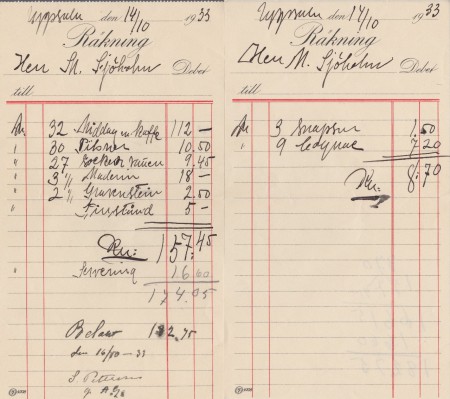 Uppsala den 14/10 1933
Räkning
Herr M. Sjöholm Debet
till
An 32 Middag m kaffe 112 —
" 30 Pilsner 10.50
" 27 Sockerd 9.45
" 3 1/1 Madeira 18 —
" 2 1/1 Gravenstein 2.50
" 5 —
Kr: 157.45
" Servering 16.60
174.05
182.75
den 16/10 - 33
Uppsala den 14/10 1933
Räkning
Herr M. Sjöholm Debet
till
An 3 Snapsar 1.50
" 9 Cognac 7.20
Kr: 8.70